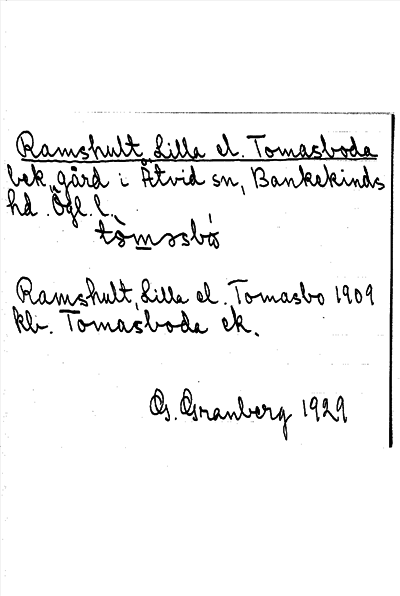 Ramshult, Lilla el. Tomasboda
bek. gård i Åtvid sn, Bankekinds
hd. Ögl. l.
tòməsbó
Ramshult, Lilla el. Tomasbo 1909
klr. Tomasboda ek.
Gs. Granberg 1929